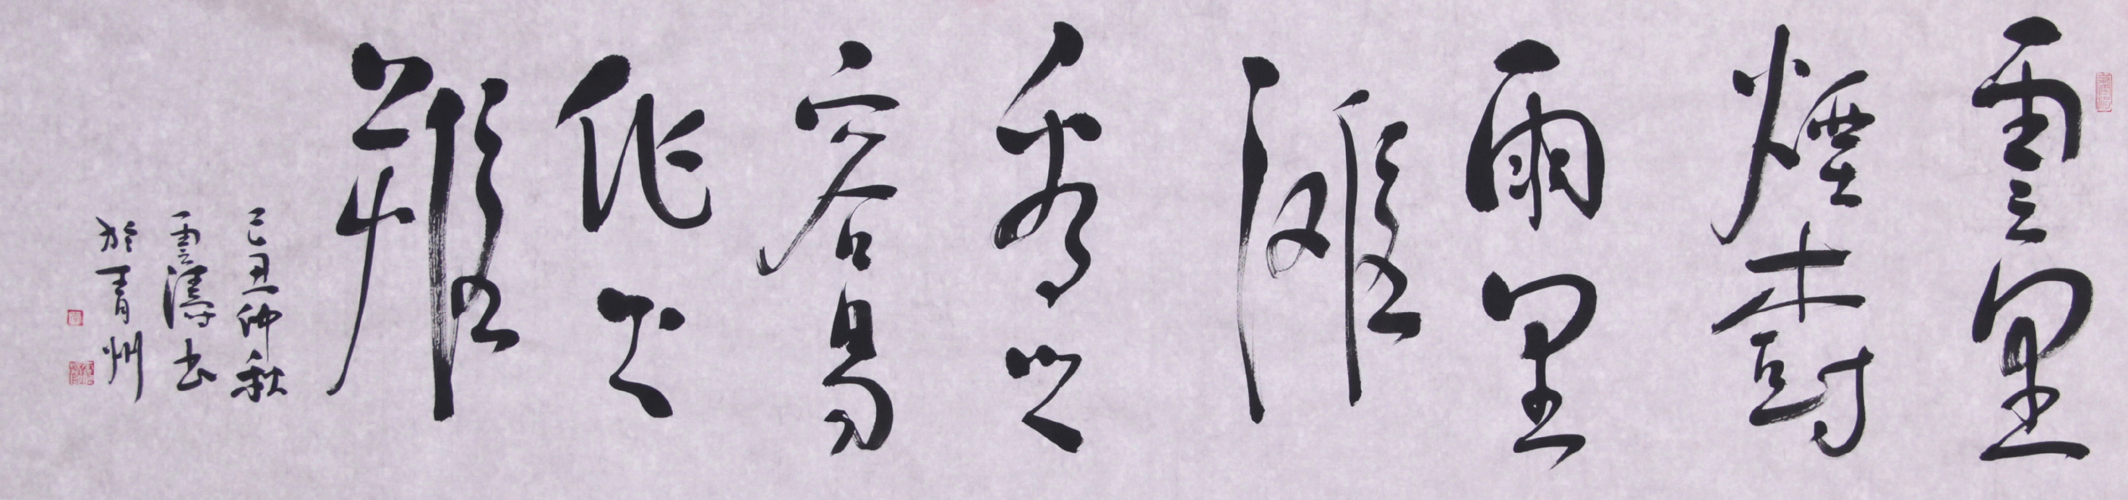 雲里
煙樹
雨里
灘
看之
容易
作之
難
己丑仲秋
雲濤书
於青州